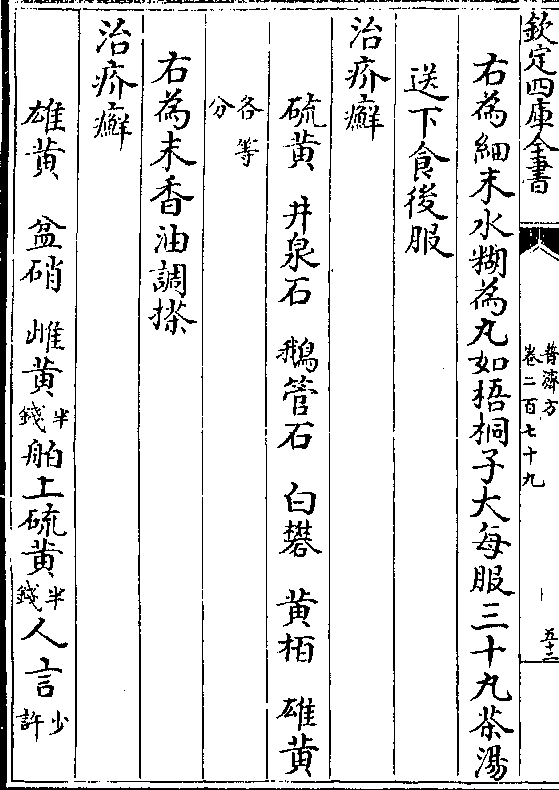 欽定四庫全書
普濟方
卷二百七十九
五十三
右為細末水糊為丸如梧桐子大每服三十丸茶湯
送下食後服
治疥癬
硫黄 井泉石 鵝管石 白礬 黄栢 雄黄
各等分
右為末香油調搽
治疥癬
雄黄 盆硝 雌黄半錢 舶上硫黄半錢 人言少許